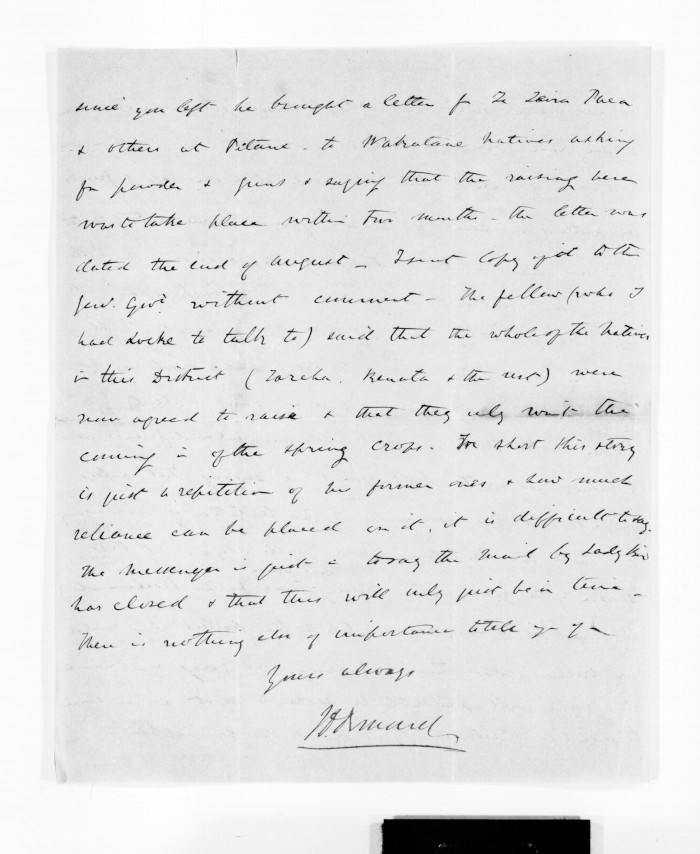 since you left he brought a letter fr Te Waru Paea
& others at Petane - to Wakatane natives asking
for powder & guns & saying that the raising here
was to take place within two months - the letter was
dated the end of august - I sent copy of it to the
Genl. Govt. without comment - The fellow (who I
had Locke to talk to) said that the whole of the Natives
in this District (Tareha, Renata & the rest) were
now agreed to raise & that they only wait the
coming in of the spring crops - In short this story
is just a repetition of his former ones & how much
reliance can be placed on it, it is difficult to say.
The Messenger is just in to say the Mail by Lady Bird
has closed & that this will only just be in time -
There is nothing else of importance to tell you of -
Yours always